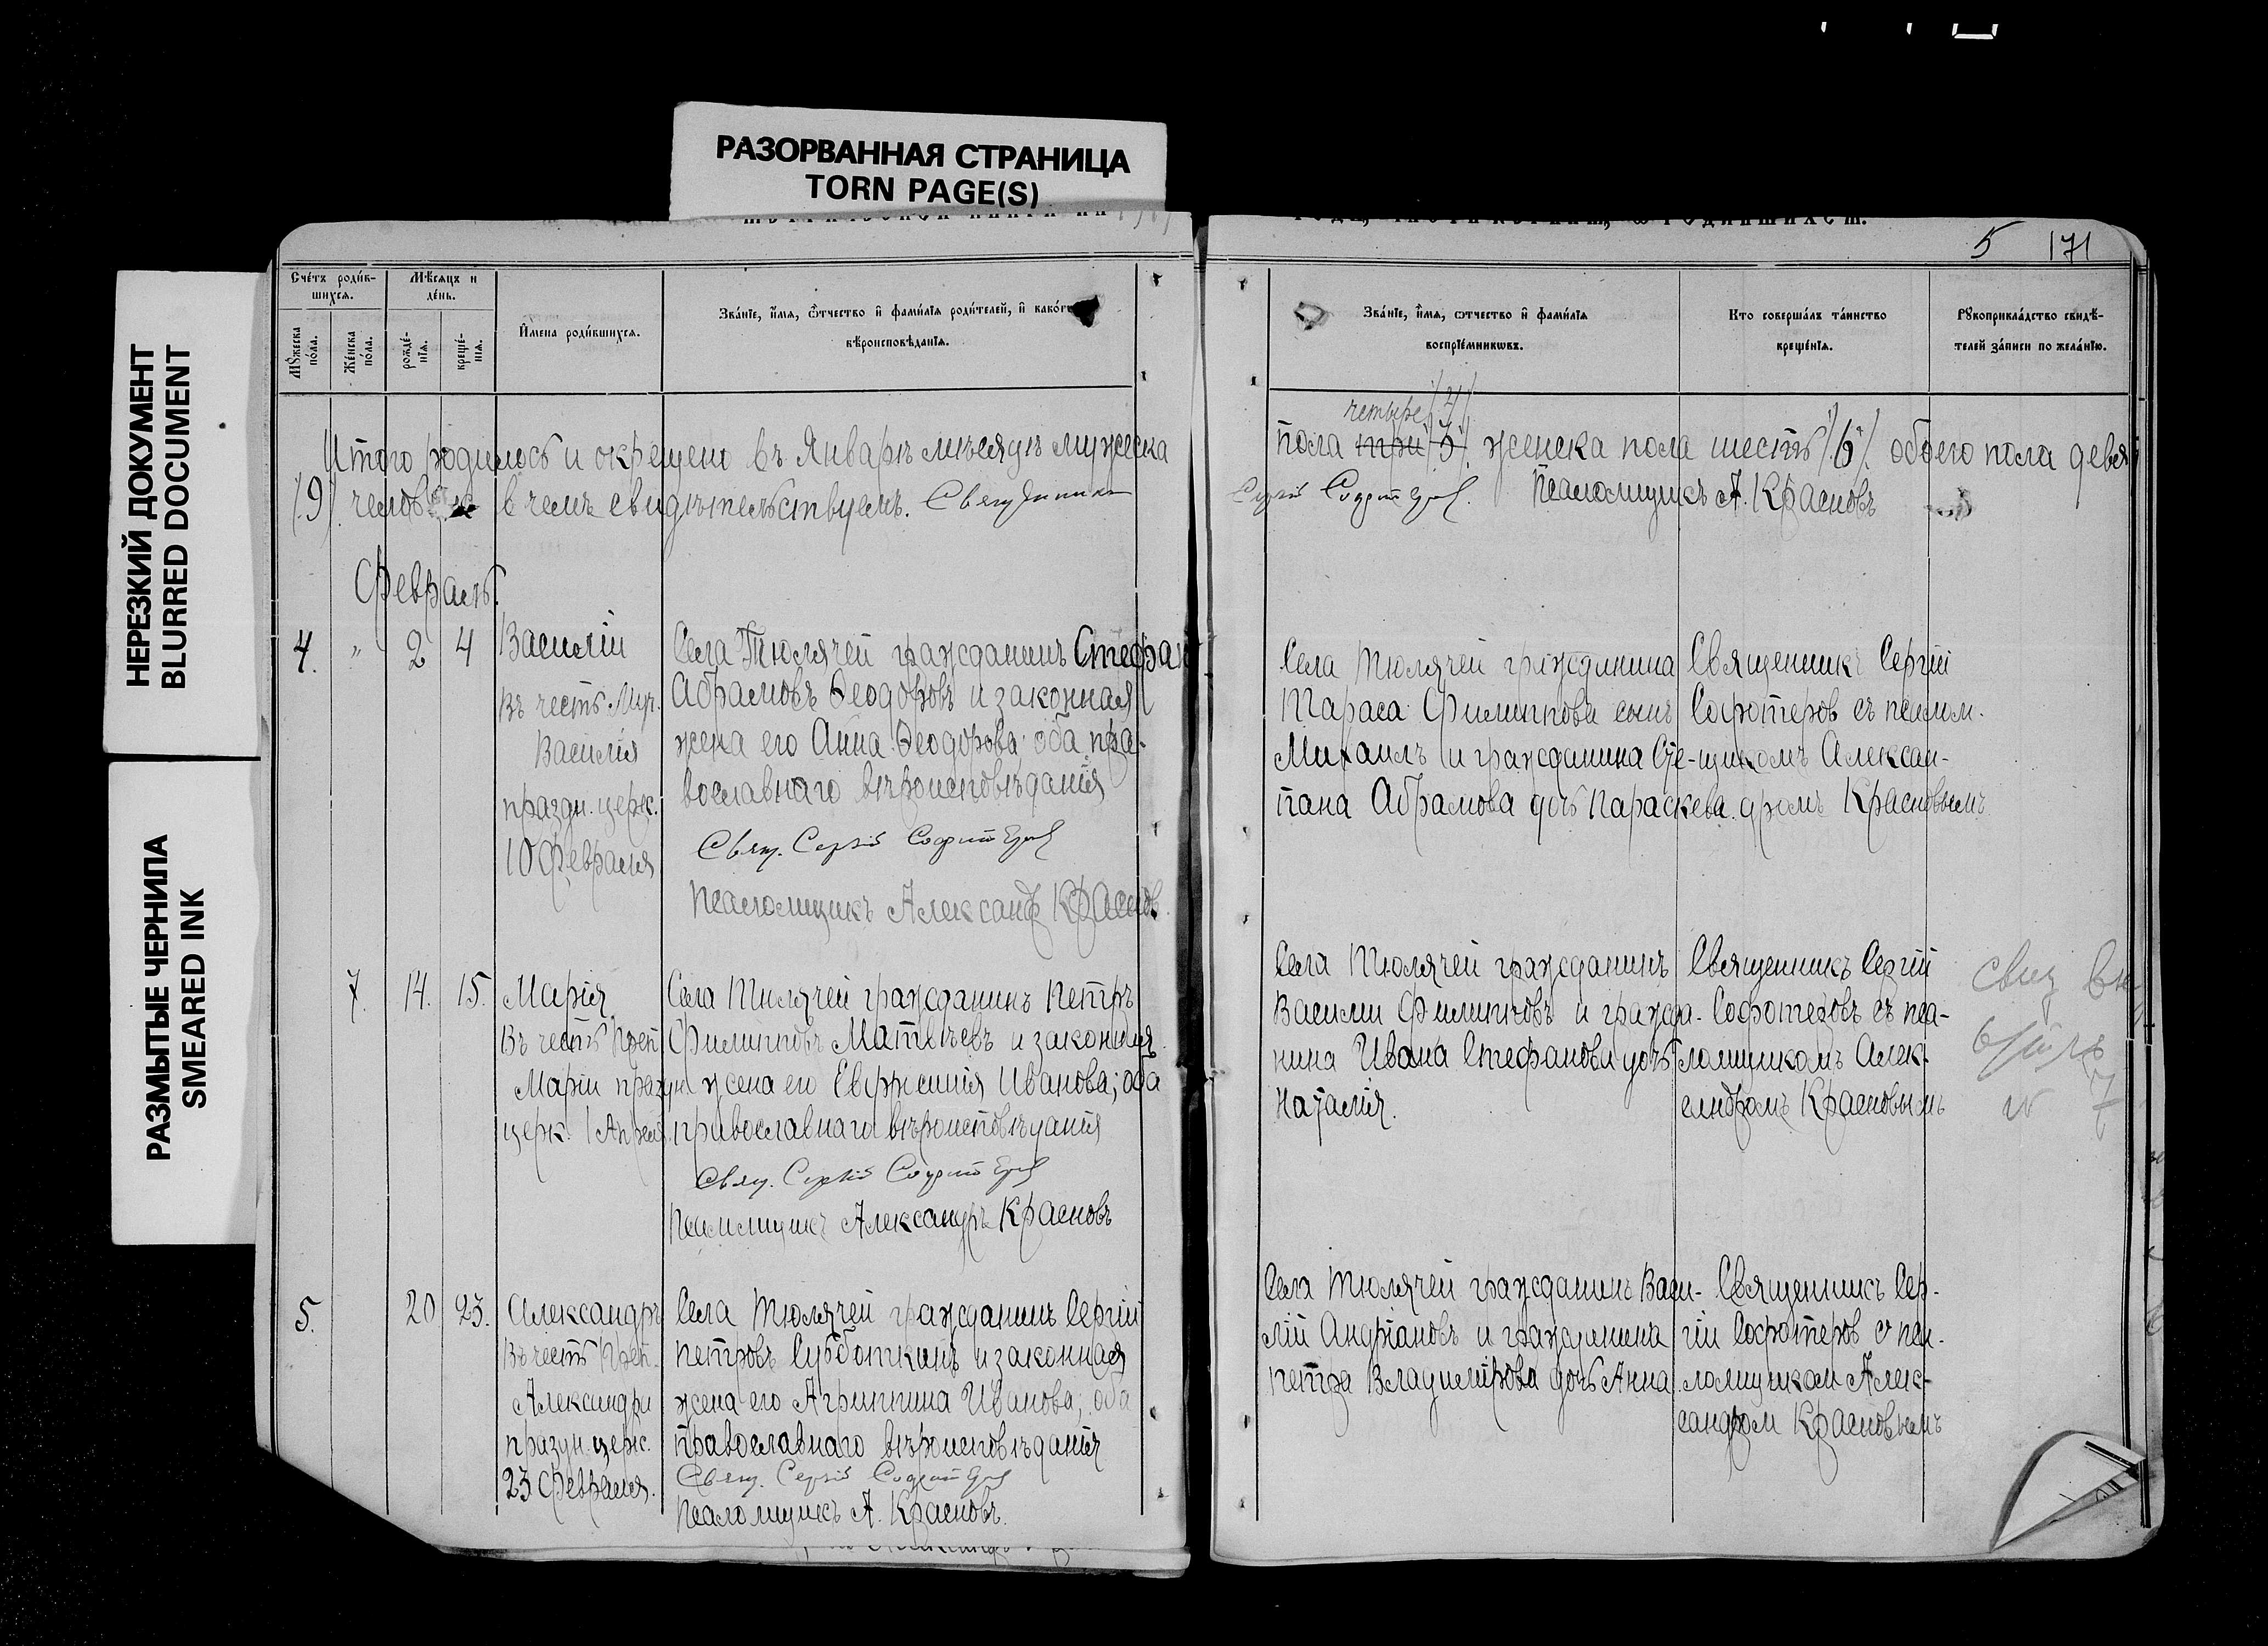 РАЗОРВАННАЯ СТРАНИЦА
TORN PAGE(S)
НЕРЕЗКИЙ ДОКУМЕНТ
BLURRED DOCUMENT
РАЗМЫТЫЕ ЧЕРНИЛА
SMEARED INK
5 171
Счетъ родившихся.
Мѣсяцъ и день.
Мужеска пола.
Женска пола.
рожденія.
крещенія.
Имена родившихся.
Званіе, имя, отчество и фамилія родителей, и какого
вѣроисповѣданія.
Званіе, имя, отчество и фамилія
воспріемниковъ.
Кто совершалъ таинство
крещенія.
Рукоприкладство свидѣ-
телей записи по желанію.
Итого родилось и окрещено въ Январѣ мѣсяцѣ мужеска
четыре /4/
пола три /3/ женска пола шесть /6/ обоего пола девя
/9/ человѣкъ в чемъ свидѣтельствуемъ. Священникъ
Сергій Софотеров. Псаломщикъ А. Красновъ
Февраль.
4. " 2 4
Василій
Въ честь Муч.
Василія
праздн. церк.
10 Февраля
Села Тюлячей гражданинъ Стефан
Абрамовъ Ѳеодоровъ и законная
жена его Анна Ѳеодорова оба пра-
вославнаго вѣроисповѣданія
Свящ. Сергій Софотеров
Псаломщикъ Александр Краснов.
Села Тюлячей гражданина
Тараса Филиппова сынъ
Михаилъ и гражданина Сте-
пана Абрамова дочь Параскева.
Священникъ Сергій
Софотеров съ псалом-
щикомъ Алексан-
дромъ Красновымъ
7. 14. 15.
Марія
Въ честь Преп.
Маріи праздн.
церк. 1 Апреля
Села Тюлячей гражданинъ Петръ
Филипповъ Матвѣевъ и законная
жена его Евфросинія Иванова; оба
православнаго вѣроисповѣданія
Свящ. Сергій Софотеров
Псаломщикъ Александръ Красновъ
Села Тюлячей гражданинъ
Василий Филипповъ и гражда-
нина Ивана Стефанова дочь
Наталія.
Священникъ Сергій
Софотеровъ съ пса-
ломщикомъ Алек-
сандромъ Красновымъ
5. 20 23.
Александръ
Въ честь Преп.
Александра
праздн. церк.
23 Февраля.
Села Тюлячей гражданинъ Сергій
Петровъ Субботкинъ и законная
жена его Агриппина Иванова; оба
православнаго вѣроисповѣданія
Свящ. Сергій Софотеров
Псаломщикъ А. Красновъ.
Села Тюлячей гражданинъ Васи-
лій Андріановъ и гражданина
Петра Владимірова дочь Анна.
Священникъ Сер-
гій Софотеров с пса-
ломщиком Алек-
сандром Красновымъ